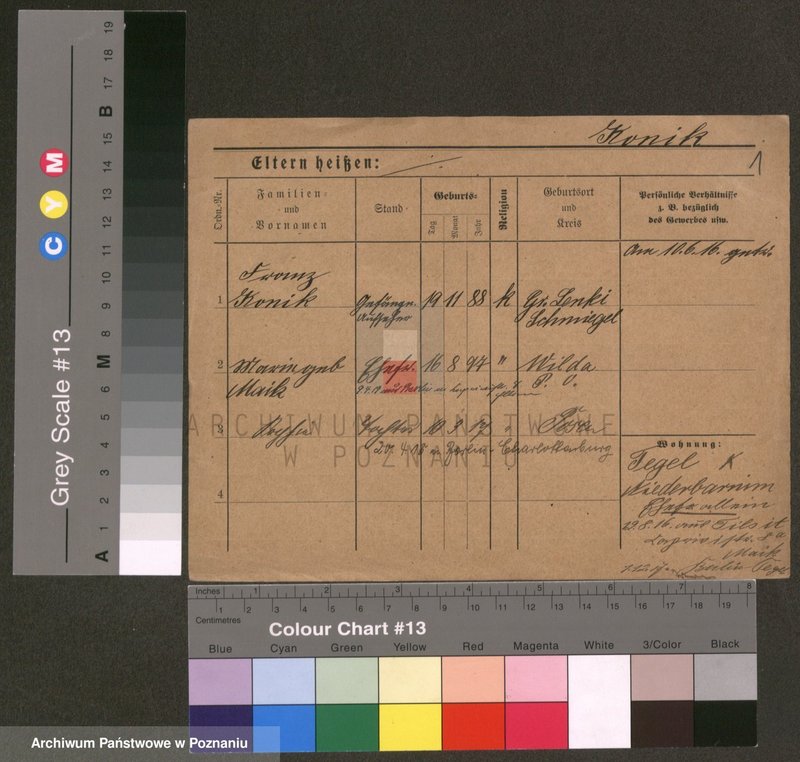 Konik
Eltern heißen:
1
Ordn.-Nr.
Familien-
und
Vornamen
Stand
Geburts-
Tag
Monat
Jahr
Religion
Geburtsort
und
Kreis
Persönliche Verhältnisse
z. B. bezüglich
des Gewerbes usw.
Am 10.6.16. getr.
1 Franz
Konik
Gefangn.
Aufseher
19 11 88 k
Gr. Lenki
Schmiegel
2 Marie geb
Maik
Ehefr. 16 8 97 " Wilda
P. O.
3 Tochter 10. 3 17 " Posen
Berlin-Charlottenburg
4
Wohnung:
Tegel K
Niederbarnim
Ehefr allein
23.8.16. aus Tilsit
Maik
Berlin Tegel
ARCHIWUM PAŃSTWOWE
W POZNANIU
Grey Scale #13
C Y M
A 1 2 3 4 5 6 M 8 9 10 11 12 13 14 15 B 17 18 19
Inches 1 2 3 4 5 6 7 8
Centimetres 1 2 3 4 5 6 7 8 9 10 11 12 13 14 15 16 17 18 19
Colour Chart #13
Blue Cyan Green Yellow Red Magenta White 3/Color Black
Archiwum Państwowe w Poznaniu